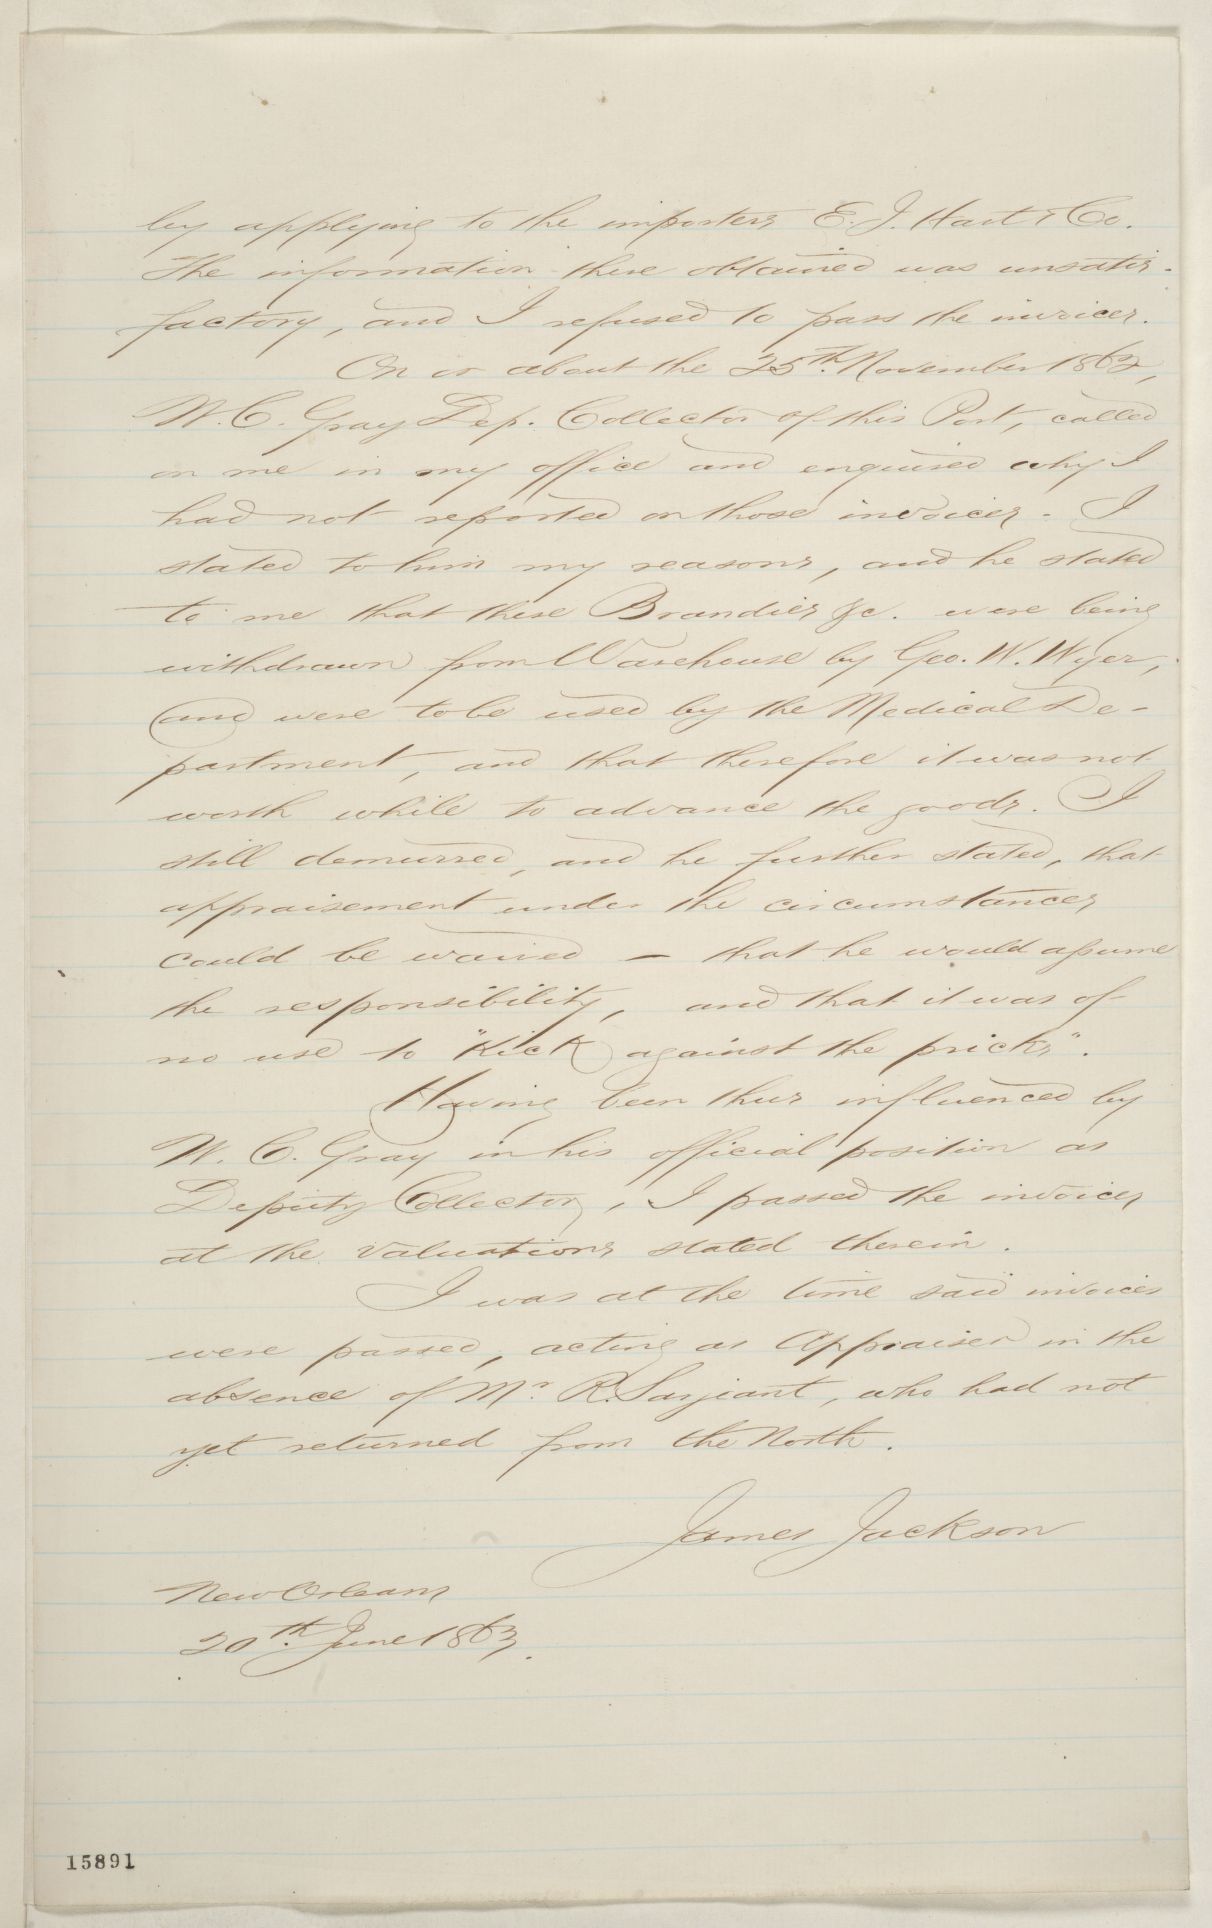 by applying to the importers E. J. Hart & Co.
The information there obtained was unsatis-
factory, and I refused to pass the invoices.
On or about the 25th. November 1862,
W. C. Gray Dep. Collector of this Port, called
on me in my office and enquired why I
had not reported on those invoices. I
stated to him my reasons, and he stated
to me that these Brandies &c. were being
withdrawn from Warehouse by Geo. W. Wyer,
and were to be used by the Medical De-
partment, and that therefore it was not
worth while to advance the goods. I
still demurred, and he further stated, that
appraisement under the circumstances
could be waived — that he would assume
the responsibility, and that it was of
no use to "Kick against the pricks".
Having been thus influenced by
W. C. Gray in his official position as
Deputy Collector, I passed the invoices
at the valuations stated therein.
I was at the time said invoices
were passed, acting as Appraiser in the
absence of Mr. R. Sarjeant, who had not
yet returned from the North.
James Jackson
New Orleans
20th. June 1863.
15891